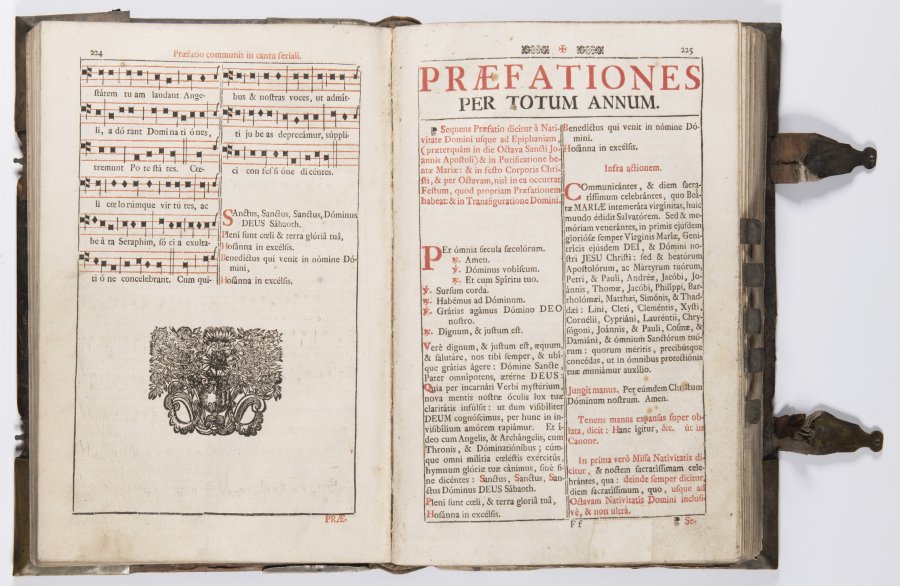 224
Præfatio communis in cantu feriali.
státem tu am laudant Ange-
li, a dó rant Domi na ti ónes,
tremunt Po te stá tes. Cœ-
li cœ lo rúmque vir tú tes, ac
be á ta Seraphim, só ci a exulta-
ti ó ne concélebrant. Cum qui-
bus & nostras voces, ut admít-
ti ju be as deprecámur, súppli-
ci con fes si óne di céntes.
SAnctus, Sanctus, Sanctus, Dóminus
DEUS Sábaoth.
Pleni sunt cœli & terra glóriâ tuâ,
Hosánna in excélsis.
Benedíctus qui venit in nómine Dó-
mini,
Hosánna in excélsis.
PRÆ-
225
PRÆFATIONES
PER TOTUM ANNUM.
Sequens Præfatio dicitur à Nati-
vitate Domini usque ad Epiphaniam,
(præterquàm in die Octava Sancti Jo-
annis Apostoli) & in Purificatione be-
atæ Mariæ: & in festo Corporis Chri-
sti, & per Octavam, nisi in ea occurrat
Festum, quod propriam Præfationem
habeat: & in Transfiguratione Domini.
PEr ómnia sæcula sæculórum.
℟. Amen.
℣. Dóminus vobíscum.
℟. Et cum Spíritu tuo.
℣. Sursum corda.
℟. Habémus ad Dóminum.
℣. Grátias agámus Dómino DEO
nostro.
℟. Dignum, & justum est.
Verè dignum, & justum est, æquum,
& salutáre, nos tibi semper, & ubí-
que grátias ágere: Dómine Sancte,
Pater omnípotens, ætérne DEUS:
Quia per incarnáti Verbi mystérium,
nova mentis nostræ óculis lux tuæ
claritátis infúlsit: ut dum visibíliter
DEUM cognóscimus, per hunc in in-
visibílium amórem rapiámur. Et í-
deo cum Angelis, & Archángelis, cum
Thronis, & Dominatiónibus; cúm-
que omni milítia cœléstis exércitûs,
hymnum glóriæ tuæ cánimus, sinè fi-
ne dicéntes: Sanctus, Sanctus, San-
ctus Dóminus DEUS Sábaoth.
Pleni sunt cœli, & terra glóriâ tuâ,
Hosánna in excélsis.
Benedíctus qui venit in nómine Dó-
mini.
Hosánna in excélsis.
Infra actionem.
COmmunicántes, & diem sacra-
tíssimum celebrántes, quo Beá-
tæ MARIÆ intemeráta virgínitas, huic
mundo édidit Salvatórem. Sed & me-
móriam venerántes, in primis ejúsdem
gloriósæ semper Vírginis Maríæ, Geni-
trícis ejúsdem DEI, & Dómini no-
stri JESU Christi: sed & beatórum
Apostolórum, ac Mártyrum tuórum,
Petri, & Pauli, Andréæ, Jacóbi, Jo-
ánnis, Thomæ, Jacóbi, Philíppi, Bar-
tholómæi, Matthæi, Simónis, & Thad-
dæi: Lini, Cleti, Cleméntis, Xysti,
Cornélii, Cypriáni, Lauréntii, Chry-
sógoni, Joánnis, & Pauli, Cosmæ, &
Damiáni, & ómnium Sanctórum tuó-
rum: quorum méritis, precibúsque
concédas, ut in ómnibus protectiónis
tuæ muniámur auxílio.
Jungit manus. Per eúmdem Christum
Dóminum nostrum. Amen.
Tenens manus expansas super ob-
lata, dicit: Hanc ígitur, &c. ùt in
Canone.
In prima verò Missa Nativitatis di-
citur, & noctem sacratíssimam cele-
brántes, qua: deinde semper dicitur,
diem sacratíssimum, quo, usque ad
Octavam Nativitatis Domini inclusi-
vè, & non ultrà.
F f
Se-